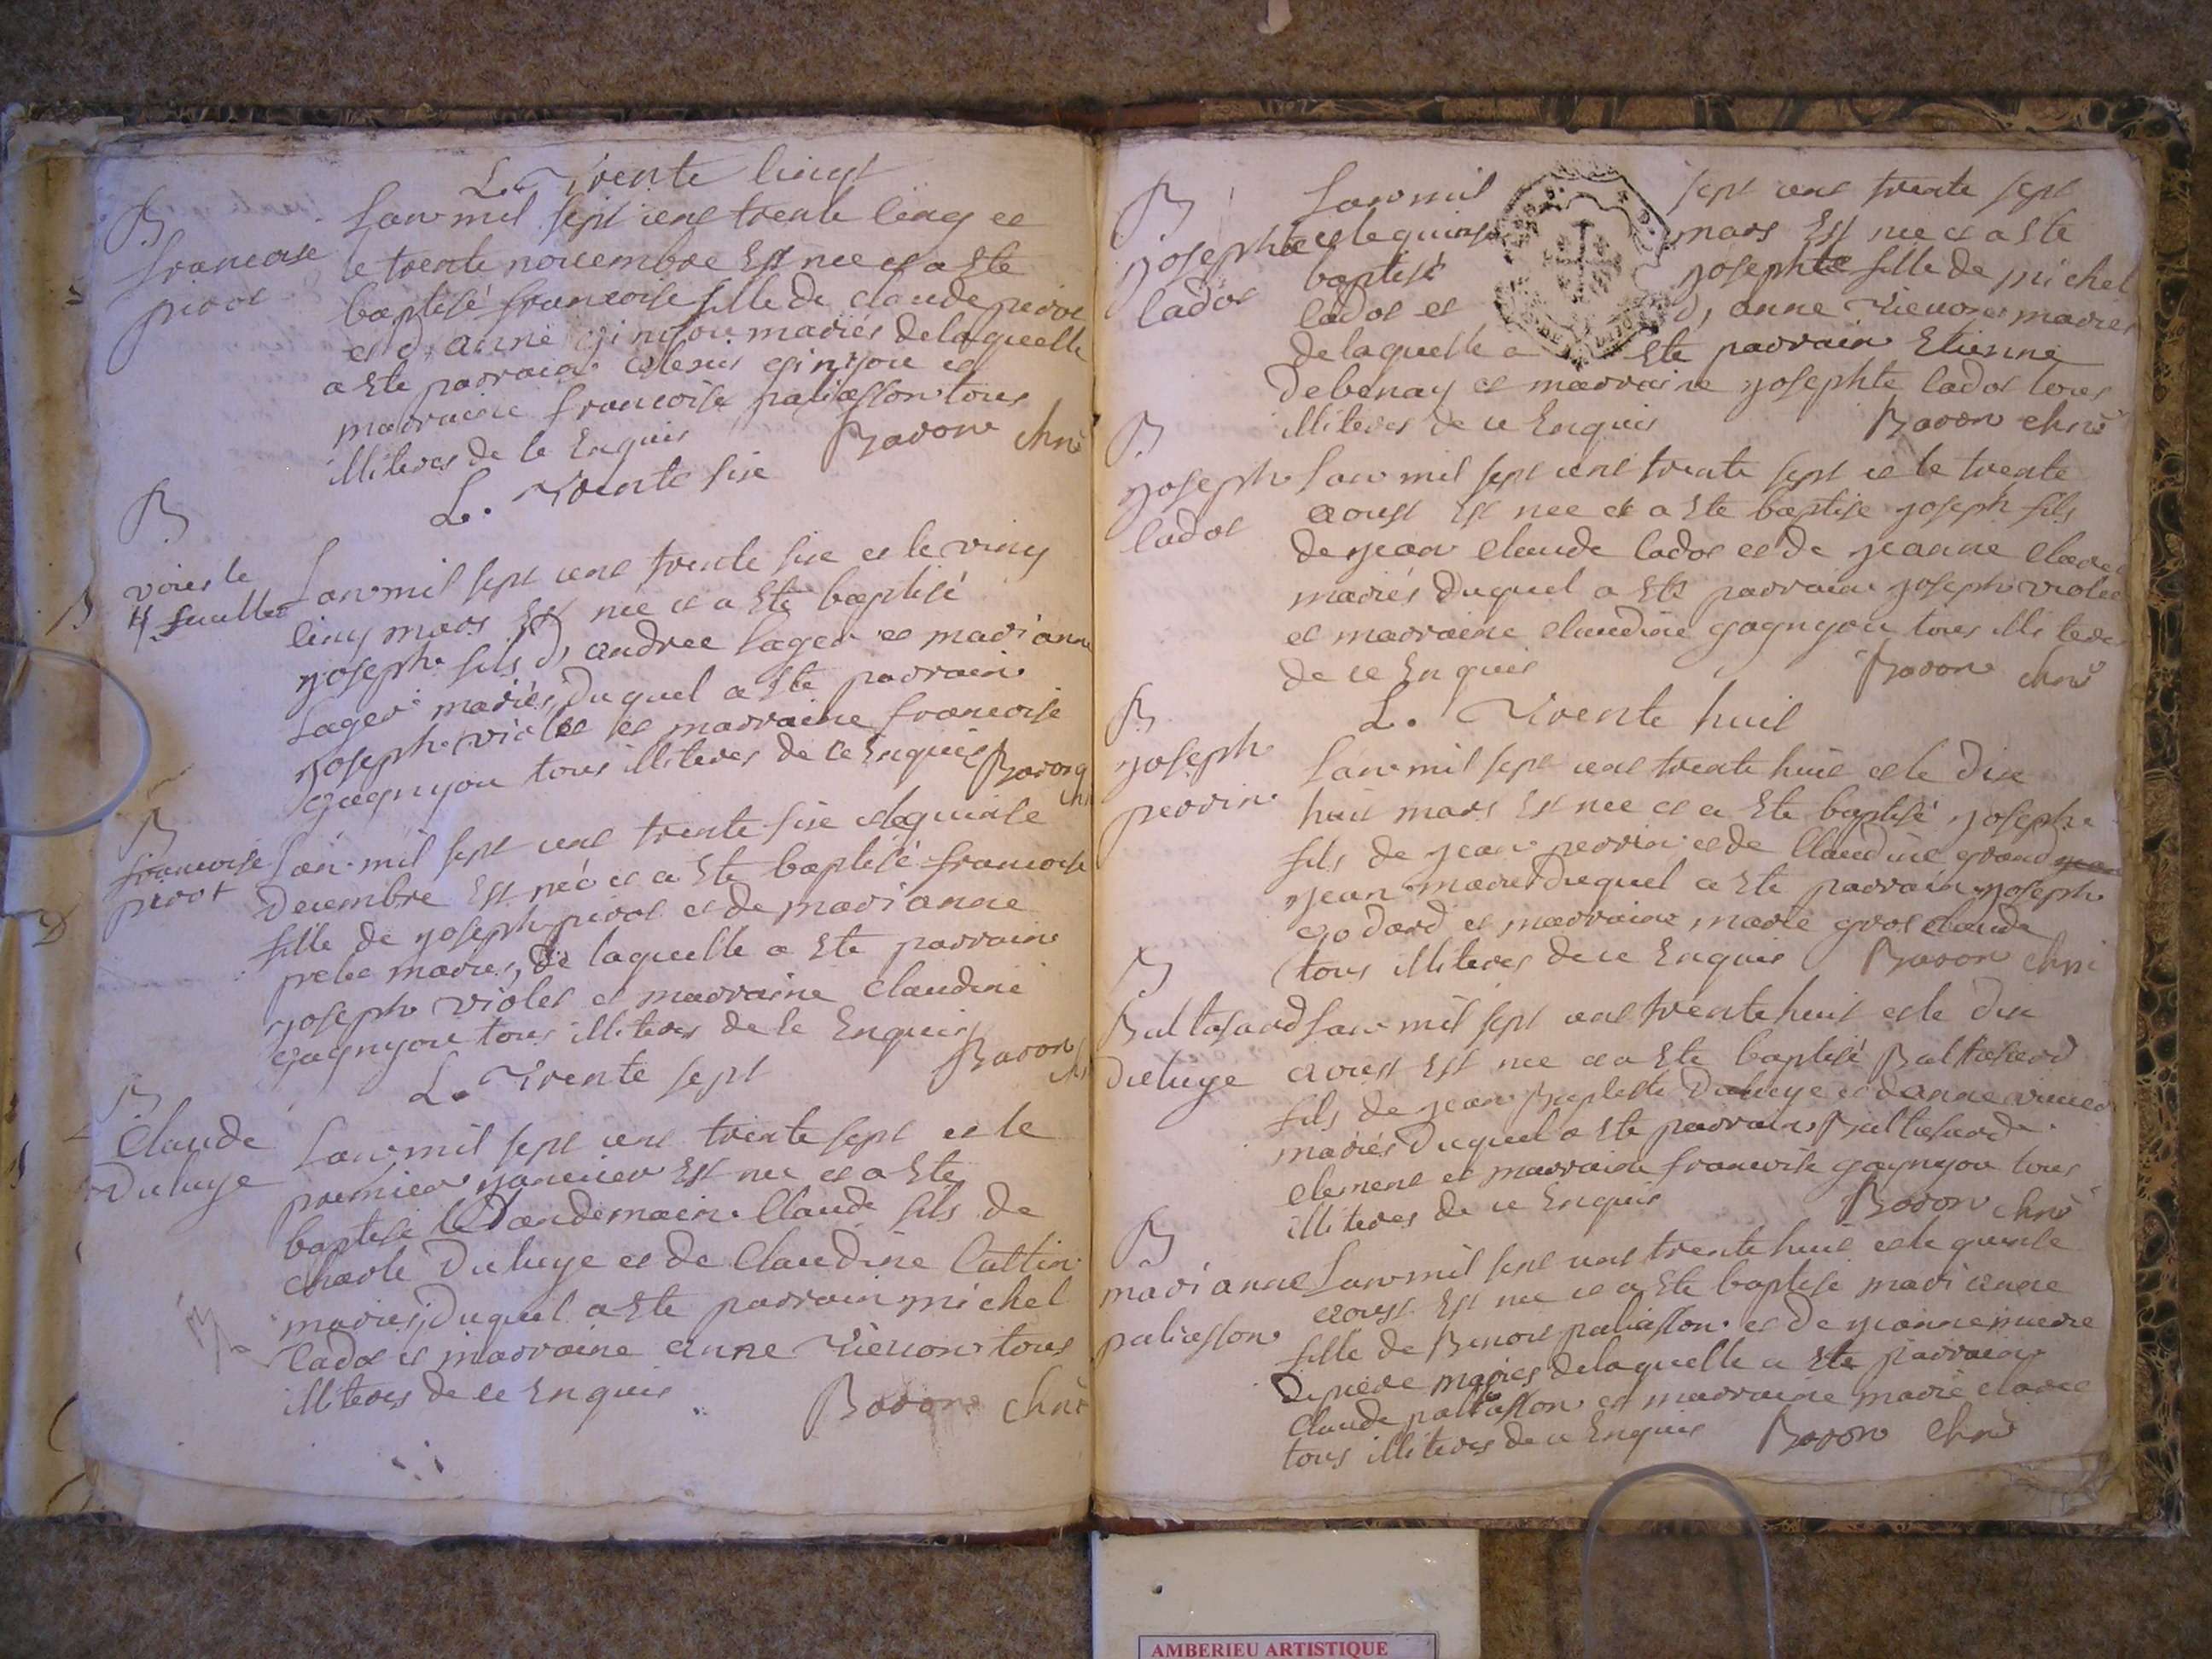 L. Trente Cinq
B
francoise
pirot
Lan mil sept cent trente cinq et
le trente nouembre Est nee et a Ete
baptisé francoise fille de claude pirot
et d, anne maries delaquelle
a Ete parrain et
marraine francoise paliasson tous
illiteres de ce Enquis Baron chne
L. Trente six
B
voies le
4 feuillet
Lan mil sept cent trente six et le ving
cinq mars Est nee et a Ete baptisé
joseph fils d, andree Lager et marianne
Lager mariés, duquel a Ete parrain
joseph violet et marraine francoise
gagnyou tous illiteres de ce Enquis Baron
chne
B
francoise
pirot
Lan mil sept cent trente six et le quinse
decembre Est néé et a Ete baptisé francoise
fille de joseph pirot et de marianne
maries, de laquelle a Ete parrain
joseph violet et marraine claudine
gagnyou tous illiteres de ce Enquis
Baron
L. Trente sept
B
Claude
Duluye
Lan mil sept cent trente sept et le
premier janvier Est nee et a Ete
baptise le Landemain Claude fils de
charle Duluye et de Claudine Cattin
maries, duquel a Ete parrain michel
lador et marraine anne vieuon tous
illiteres de ce Enquis Baron chne
B
josephte
lador
Lan mil sept cent trente sept
et le quinse mars Est nee et a Ete
baptisé josephte fille de michel
lador et d, anne vieuon maries
delaquelle a Ete parrain Etienne
debenay et marraine josephte lador tous
illiteres de ce Enquis Baron chne
B
joseph
lador
Lan mil sept cent trente sept et le trente
aoust Est nee et a Ete baptise joseph fils
de jean claude lador et de jeanne
mariés duquel a Ete parrain joseph violet
et marraine claudine gagnyou tous illiteres
de ce Enquis Baron chne
L. Trente huit
B
joseph
perrin
Lan mil sept cent trente huit et le dix
huit mars Est nee et a Ete baptisé joseph
fils de jean perrin et de Claudine grand
jean maries duquel a Ete parrain joseph
godard et marraine marie gros claude
tous illiteres de ce Enquis Baron chne
B
Baltasard
Duluye
Lan mil sept cent trente huit et le dix
aoust Est nee et a Ete baptisé Baltasard
fils de jean Baptiste Duluye et danne
mariés duquel a Ete parrain Baltasard
clement et marraine francoise gagnyou tous
illiteres de ce Enquis Baron chne
B
marianne
paliasson
Lan mil sept cent trente huit et le quinse
aoust Est nee et a Ete baptise marianne
fille de Benoit paliasson et de jeanne
maries delaquelle a Ete parrain
claude paliasson et marraine marie
tous illiteres de ce Enquis Baron chne
AMBERIEU ARTISTIQUE